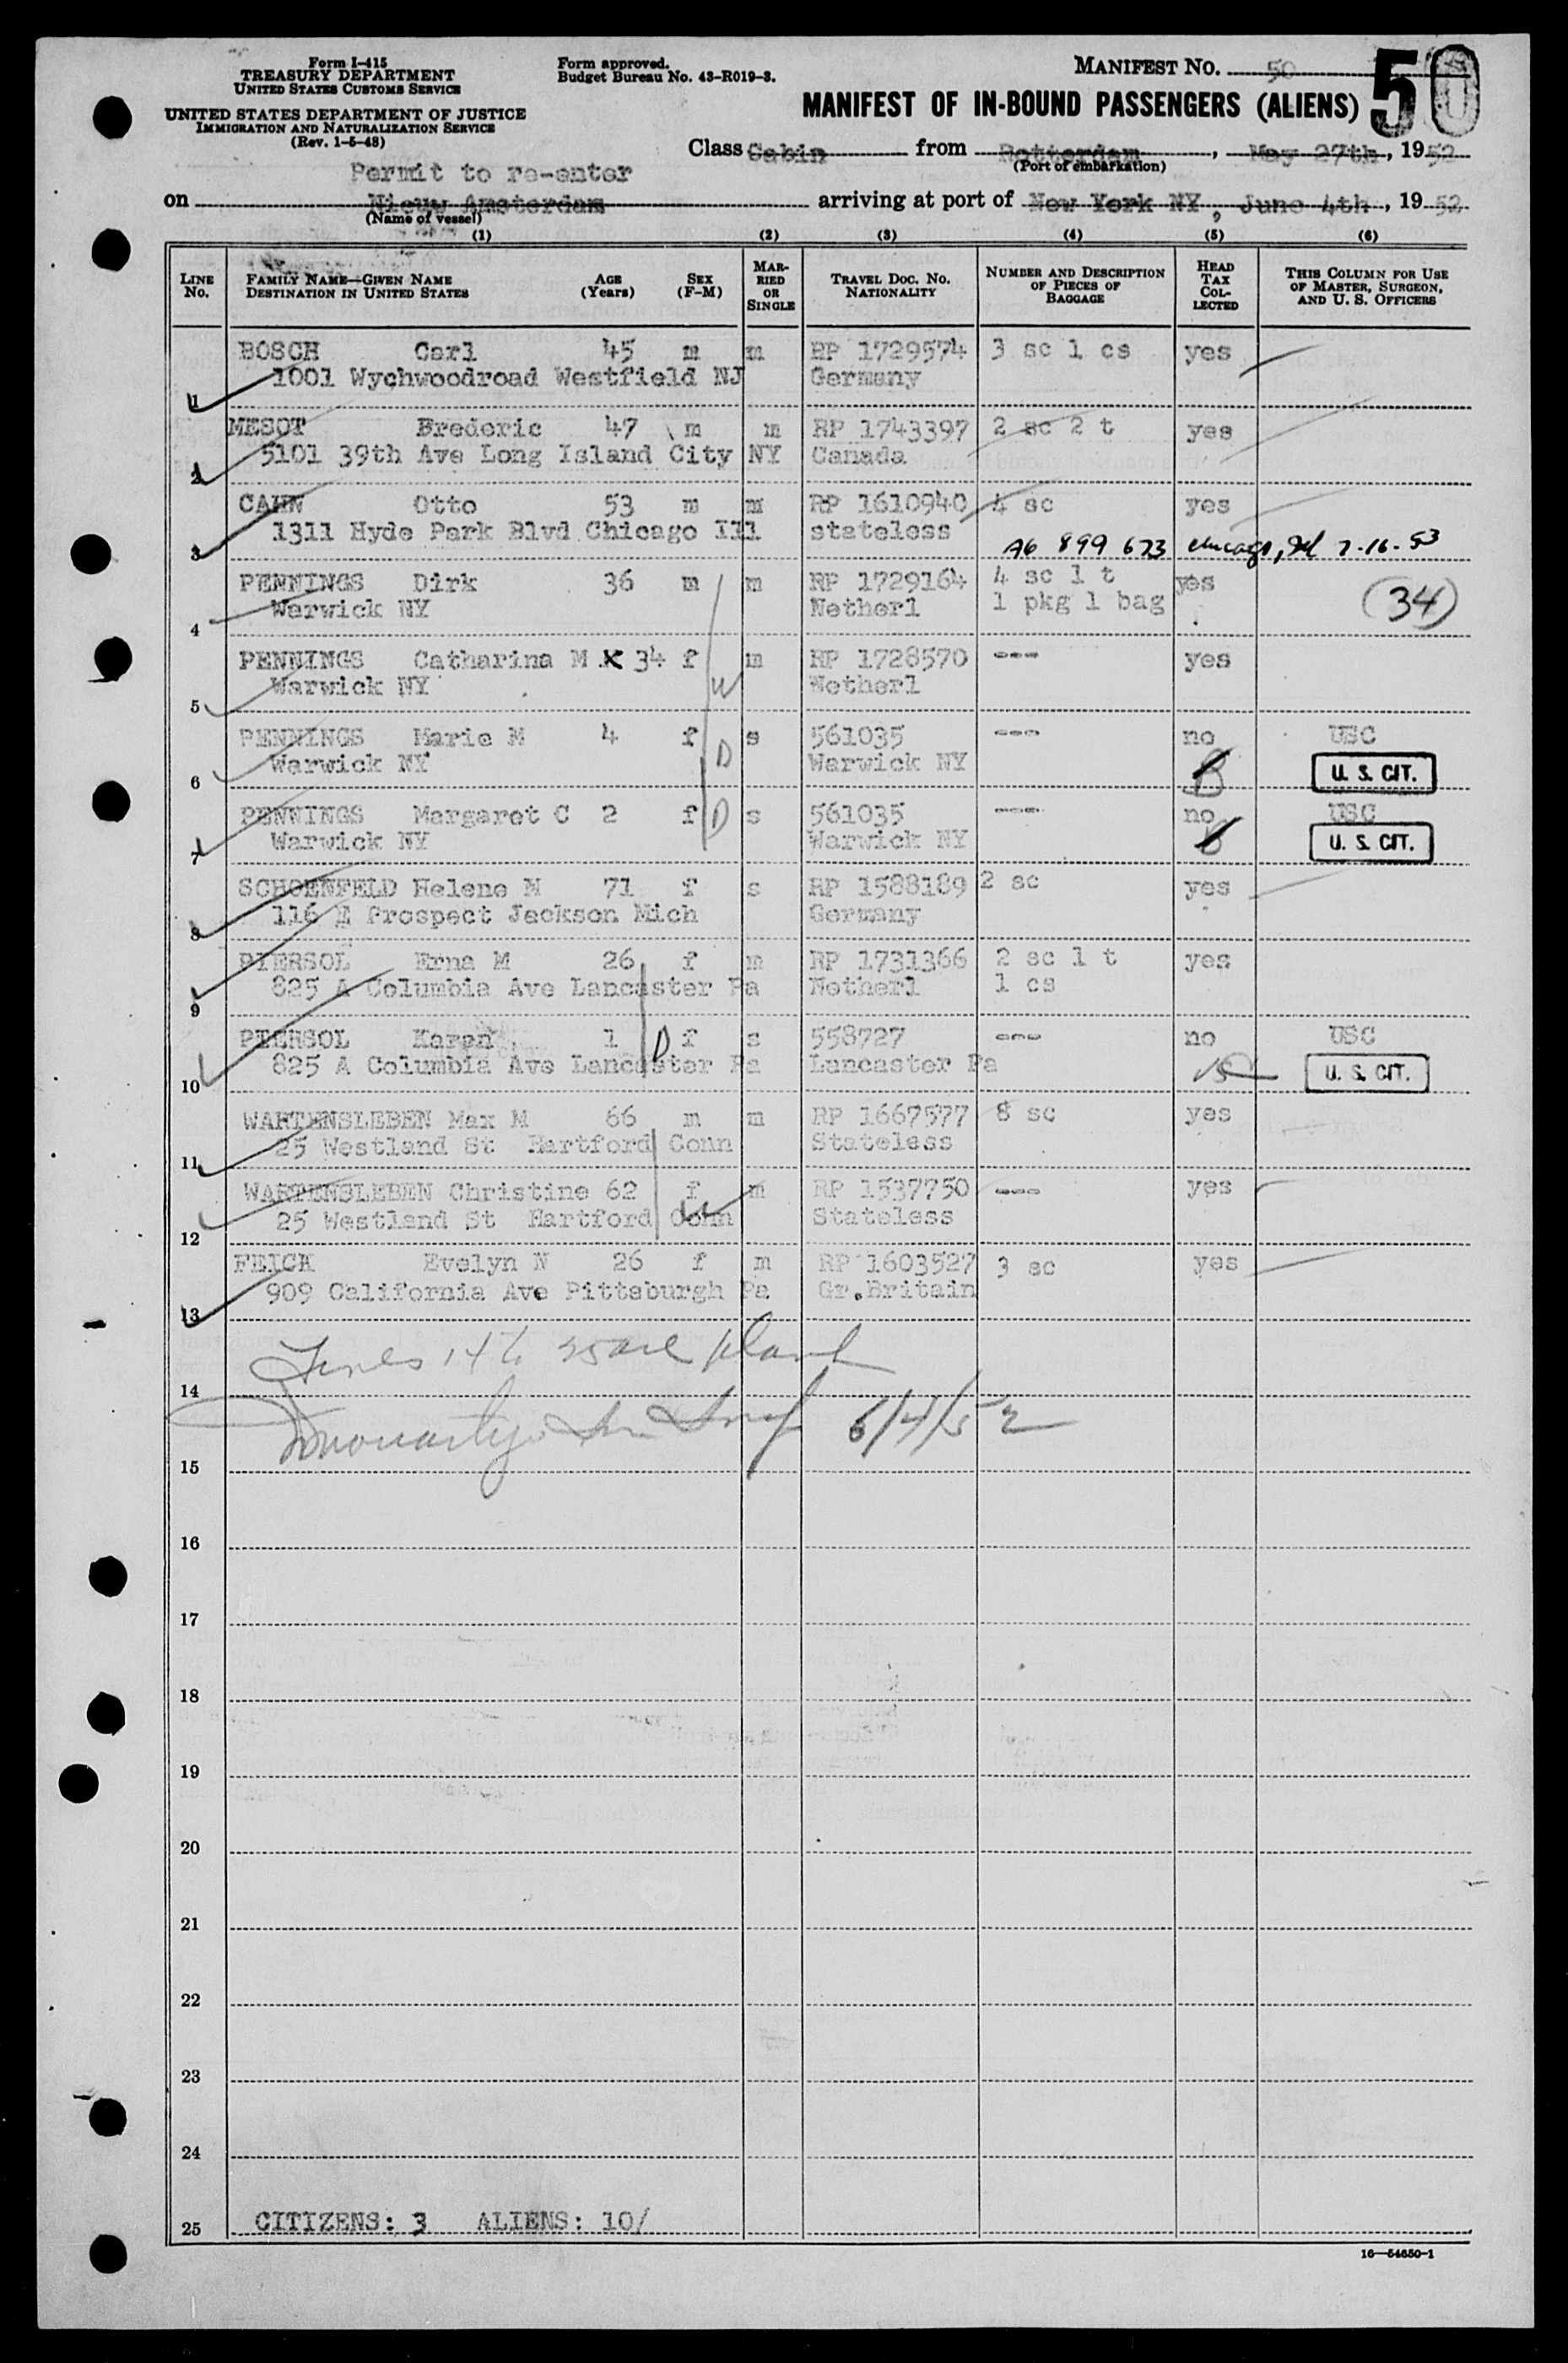 Form I-415
TREASURY DEPARTMENT
UNITED STATES CUSTOMS SERVICE
UNITED STATES DEPARTMENT OF JUSTICE
IMMIGRATION AND NATURALIZATION SERVICE
(Rev. 1-5-48)
Form approved.
Budget Bureau No. 43-R019-3.
MANIFEST NO. 50
50
MANIFEST OF IN-BOUND PASSENGERS (ALIENS)
Class Cabin from Rotterdam, May 27th, 1952
(Port of embarkation)
Permit to re-enter
on Nieuw Amsterdam arriving at port of New York NY, June 4th, 1952
(Name of vessel)
(1) (2) (3) (4) (5) (6)
LINE NO. FAMILY NAME—GIVEN NAME DESTINATION IN UNITED STATES AGE (Years) SEX (F-M) MARRIED OR SINGLE TRAVEL DOC. NO. NATIONALITY NUMBER AND DESCRIPTION OF PIECES OF BAGGAGE HEAD TAX COLLECTED THIS COLUMN FOR USE OF MASTER, SURGEON, AND U. S. OFFICERS
BOSCH Carl 45 m m RP 1729574 3 sc 1 cs yes
1 1001 Wychwoodroad Westfield NJ Germany
MESOT Frederic 47 m m RP 1743397 2 sc 2 t yes
2 5101 39th Ave Long Island City NY Canada
CAHN Otto 53 m m RP 1610940 4 sc yes
3 1311 Hyde Park Blvd Chicago Ill stateless
A6 899 673 Chicago, Ill 7-16-53
PENNINGS Dirk 36 m m RP 1729164 4 sc 1 t yes
4 Warwick NY Netherl 1 pkg 1 bag (34)
PENNINGS Catharina M X 34 f m RP 1728570 --- yes
5 Warwick NY W Netherl
PENNINGS Marie M 4 f s 561035 --- no USC
6 Warwick NY D Warwick NY U. S. CIT.
PENNINGS Margaret C 2 f D s 561035 --- no USC
7 Warwick NY Warwick NY U. S. CIT.
SCHOENFELD Helene N 71 f s RP 1588189 2 sc yes
8 116 E Prospect Jackson Mich Germany
PIERSOL Erna M 26 f m RP 1731366 2 sc 1 t yes
9 825 A Columbia Ave Lancaster Pa Netherl 1 cs
PIERSOL Karen 1 D f s 558727 --- no USC
10 825 A Columbia Ave Lancaster Pa Lancaster Pa U. S. CIT.
WARTENSLEBEN Max M 66 m m RP 1667577 8 sc yes
11 25 Westland St Hartford Conn Stateless
WARTENSLEBEN Christine 62 f m RP 1537750 --- yes
12 25 Westland St Hartford Conn W Stateless
FEICK Evelyn N 26 f m RP 1603527 3 sc yes
13 909 California Ave Pittsburgh Pa Gr.Britain
14 Lines 14 to 25 are blank
15 6/4/52
16
17
18
19
20
21
22
23
24
25 CITIZENS: 3 ALIENS: 10/
16—54650-1